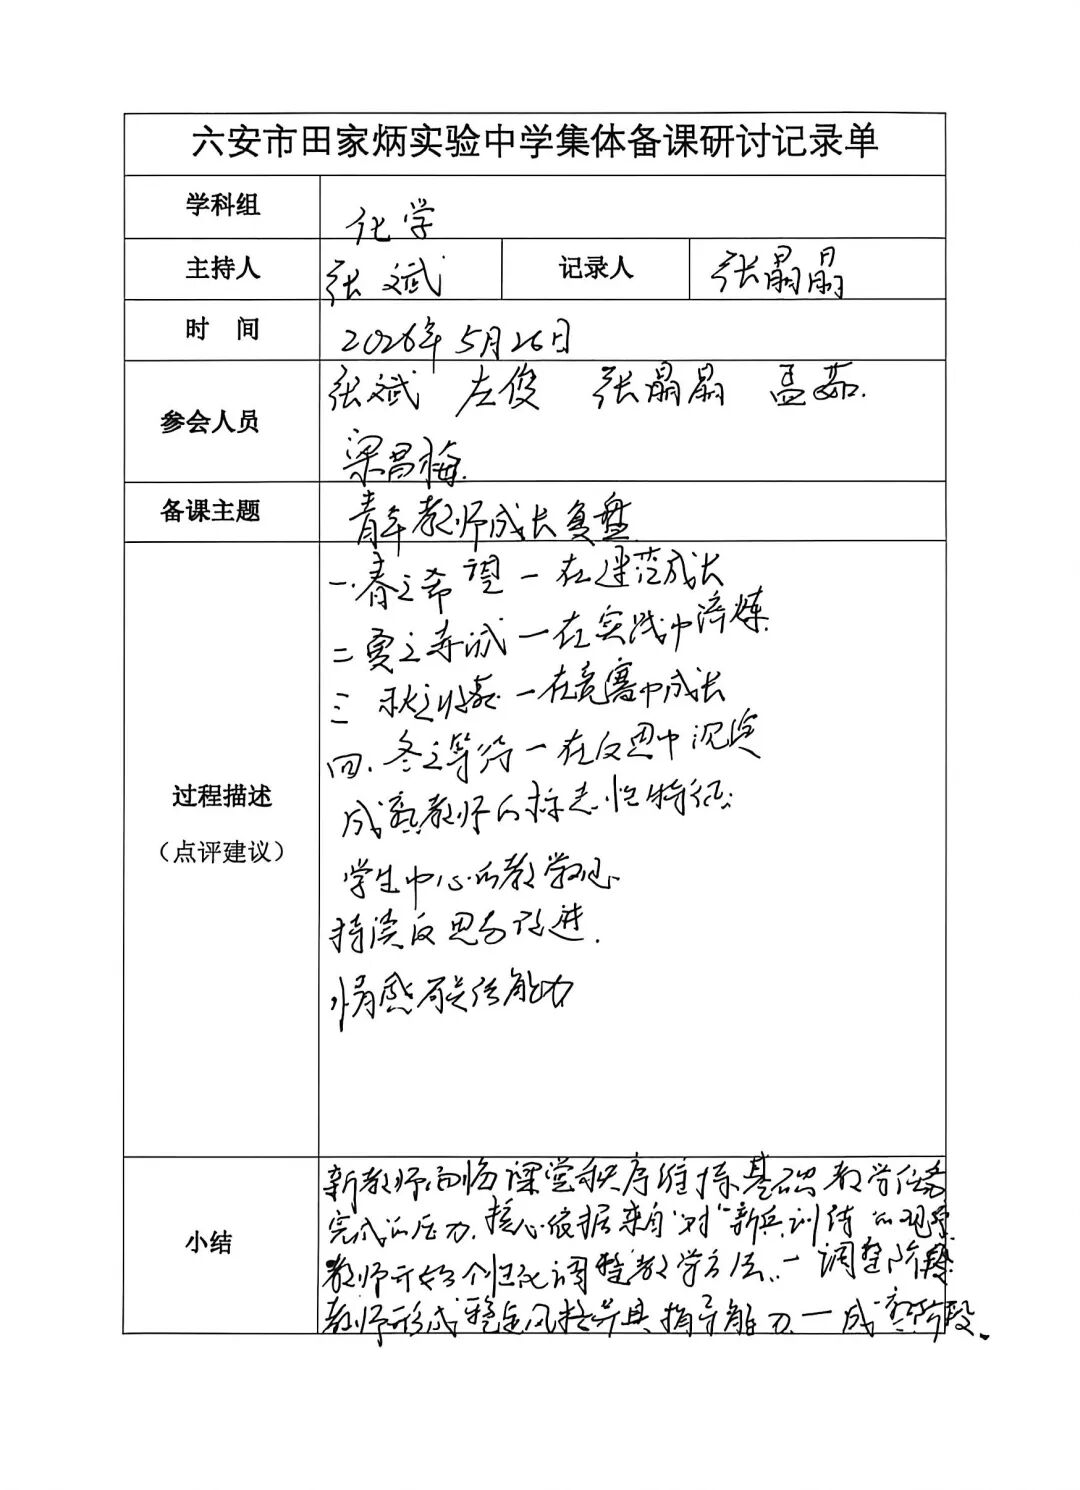 六安市田家炳实验中学集体备课研讨记录单
学科组 化学
主持人 张斌 记录人 张晶晶
时 间 2026年5月26日
参会人员 张斌 左俊 张晶晶 孟茹
梁昌梅
备课主题 青年教师成长复盘
过程描述
（点评建议）
一.春之希望一在迷茫成长
二夏之尝试一在实践中淬炼
三 秋之收获一在竞赛中成长
四.冬之等待一在反思中沉淀
成熟教师的标志性特征:
学生中心的教学观
持续反思与改进.
情感联结能力
小结
新教师面临课堂秩序维持基础教学任务
完成的压力.核心依据来自"对"新兵训练"的观察
教师开始个性化调整教学方法.一调整阶段
教师形成稳定风格并具指导能力一成熟阶段.